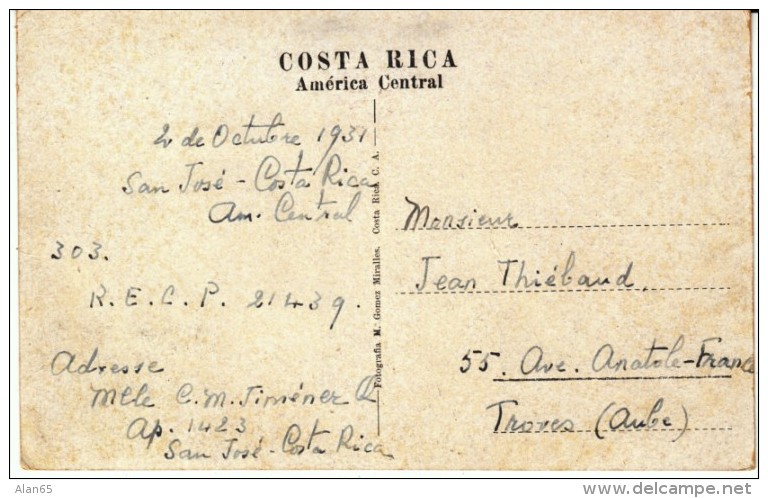 COSTA RICA
América Central
2 de Octubre 1931
San José - Costa Rica
Am. Central
303.
R. E. C. P. 21439.
Adresse
Mlle C. M. Jiménez Q
Ap. 1423
San José - Costa Rica
Fotografia M. Gomez Miralles. Costa Rica C. A.
Monsieur
Jean Thiébaud.
55. Ave. Anatole-France
Troyes (Aube)
Alan65
delcampe.net